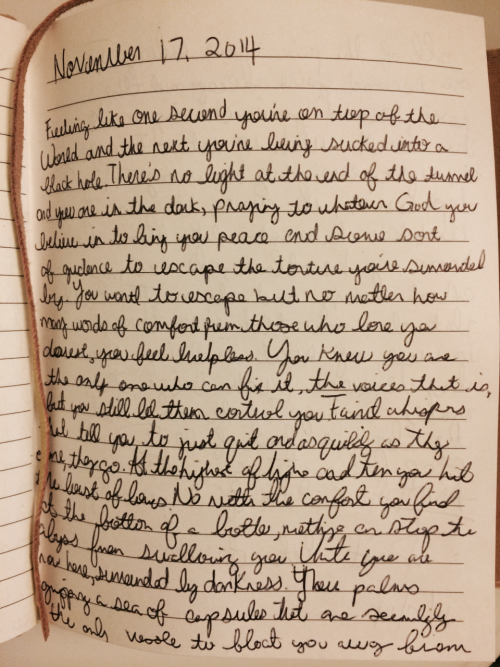 November 17, 2014
Feeling like one second you're on top of the
World and the next you're being sucked into a
black hole. There's no light at the end of the tunnel
and you are in the dark, praying to whatever God you
believe in to bring you peace and some sort
of guidance to escape the torture you're surrounded
by. You want to escape but no matter how
many words of comfort from those who love you
dearest, you feel helpless. You know you are
the only one who can fix it, the voices that is,
but you still let them control you. Faint whispers
tell you to just quit and as quickly as they
come, they go. At the highest of highs and then you hit
the lowest of lows. No matter the comfort you find
at the bottom of a bottle, nothing can stop the
abyss from swallowing you. Until you are
now here, surrounded by darkness. Your palms
gripping a sea of capsules that are seemingly
the only vessle to float you away from